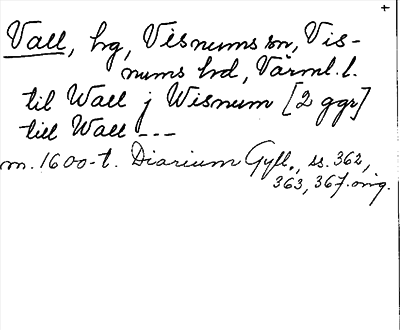 +
Vall, hg, Visnums sn, Vis-
nums hd, Värml. l.
til Wall j Wisnum [2 ggr]
till Wall ---
m. 1600-t. Diarium Gyll., ss. 362,
363, 367. orig.